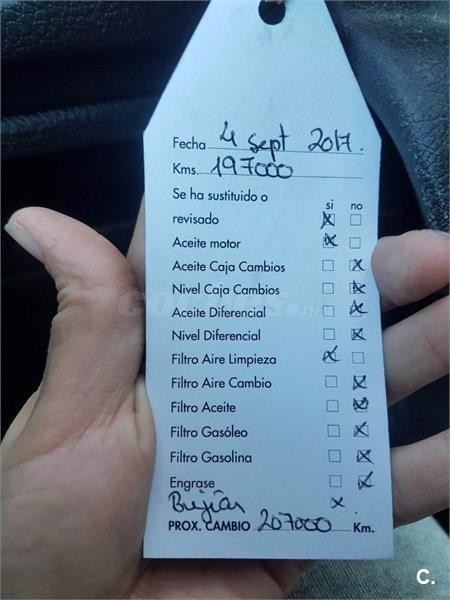 Fecha 4 sept 2017.
Kms. 197000
Se ha sustituido o si no
revisado X ☐
Aceite motor X ☐
Aceite Caja Cambios ☐ X
Nivel Caja Cambios ☐ X
Aceite Diferencial ☐ X
Nivel Diferencial ☐ X
Filtro Aire Limpieza X ☐
Filtro Aire Cambio ☐ X
Filtro Aceite ☐ X
Filtro Gasóleo ☐ X
Filtro Gasolina ☐ X
Engrase ☐ X
Bujías X
PROX. CAMBIO 207000 Km.
C.